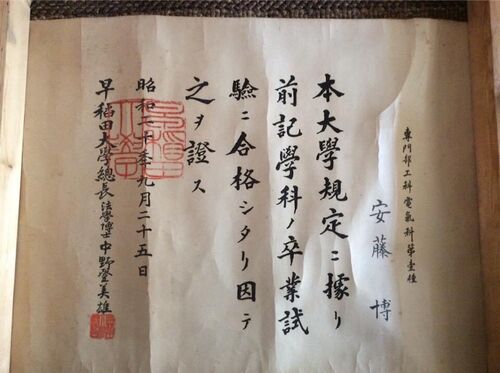 專門部工科電氣科第壹種
安藤博
本大學規定ニ據リ
前記學科ノ卒業試
驗ニ合格シタリ因テ
之ヲ證ス
昭和二十年九月二十五日
早稲田大學總長法學博士中野登美雄